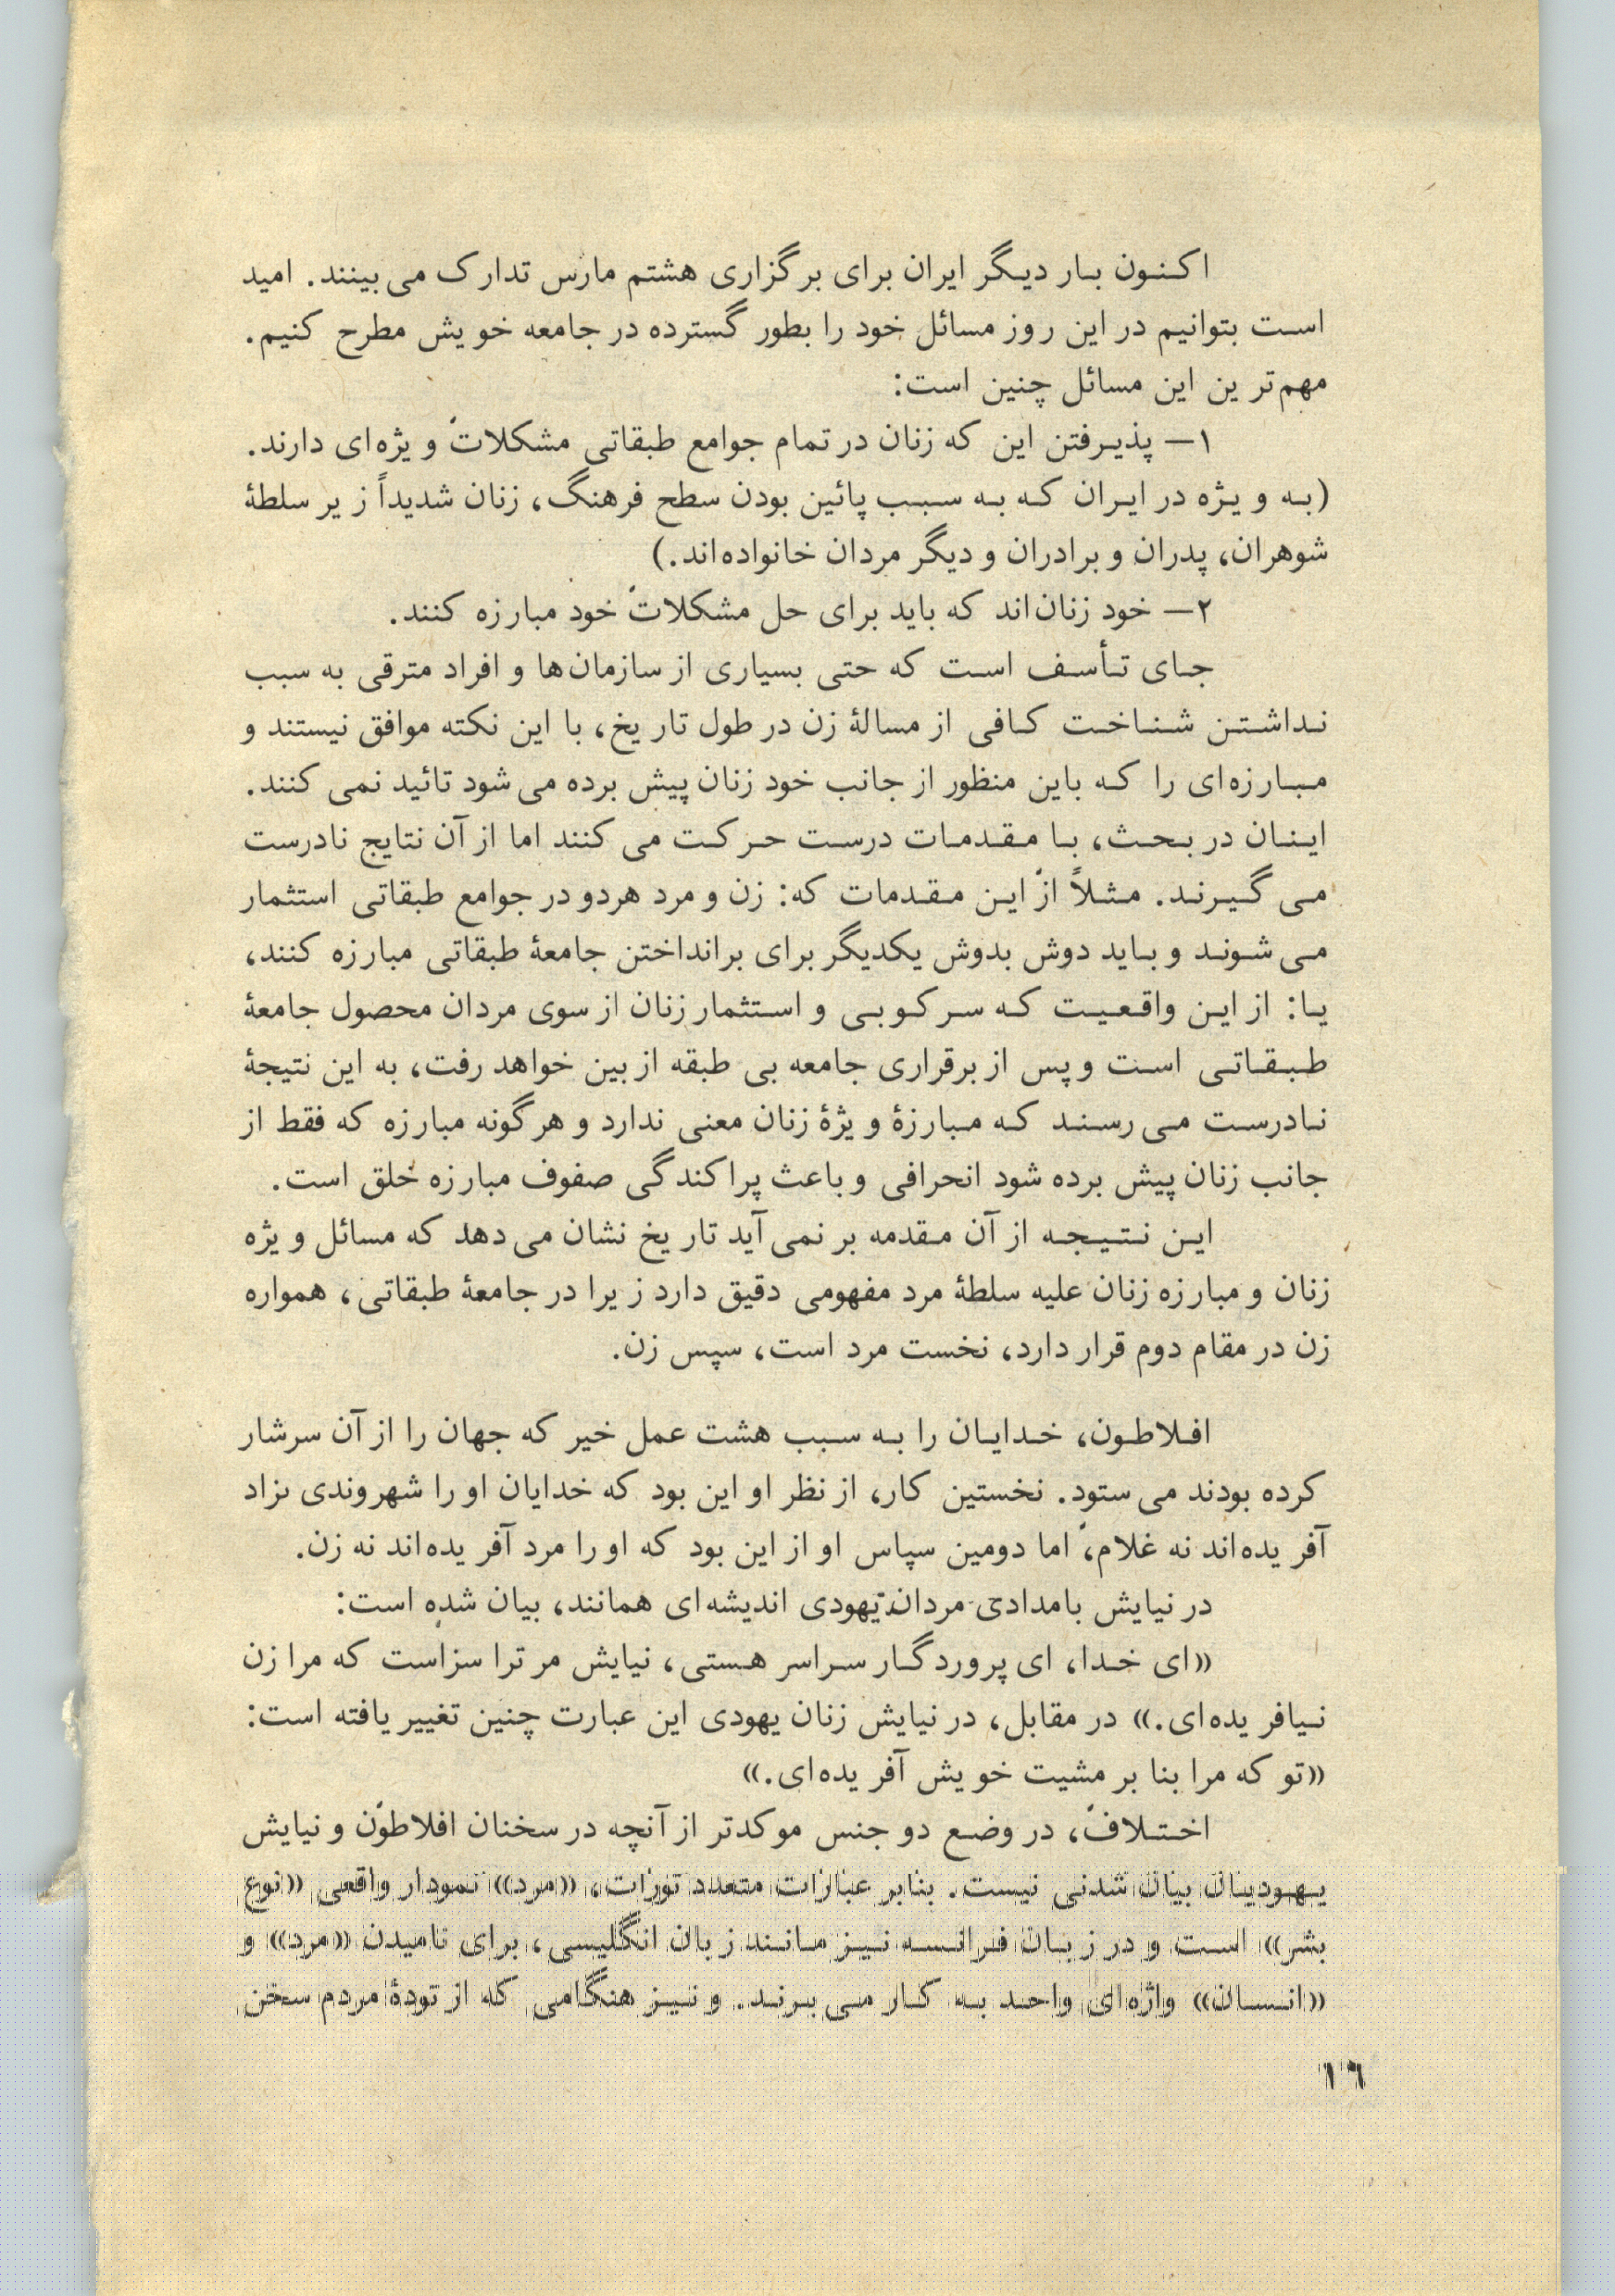 اکنون بار دیگر ایران برای برگزاری هشتم مارس تدارک می‌بینند. امید
است بتوانیم در این روز مسائل خود را بطور گسترده در جامعه خویش مطرح کنیم.
مهم‌ترین این مسائل چنین است:
۱— پذیرفتن این که زنان در تمام جوامع طبقاتی مشکلات ویژه‌ای دارند.
(به ویژه در ایران که به سبب پائین بودن سطح فرهنگ، زنان شدیداً زیر سلطهٔ
شوهران، پدران و برادران و دیگر مردان خانواده‌اند.)
۲— خود زنان‌اند که باید برای حل مشکلات خود مبارزه کنند.
جای تأسف است که حتی بسیاری از سازمان‌ها و افراد مترقی به سبب
نداشتن شناخت کافی از مسالهٔ زن در طول تاریخ، با این نکته موافق نیستند و
مبارزه‌ای را که باین منظور از جانب خود زنان پیش برده می‌شود تائید نمی‌کنند.
اینان در بحث، با مقدمات درست حرکت می‌کنند اما از آن نتایج نادرست
می‌گیرند. مثلاً از این مقدمات که: زن و مرد هردو در جوامع طبقاتی استثمار
می‌شوند و باید دوش بدوش یکدیگر برای برانداختن جامعهٔ طبقاتی مبارزه کنند،
یا: از این واقعیت که سرکوبی و استثمار زنان از سوی مردان محصول جامعهٔ
طبقاتی است و پس از برقراری جامعه بی طبقه از بین خواهد رفت، به این نتیجهٔ
نادرست می‌رسند که مبارزهٔ ویژهٔ زنان معنی ندارد و هرگونه مبارزه که فقط از
جانب زنان پیش برده شود انحرافی و باعث پراکندگی صفوف مبارزه خلق است.
این نتیجه از آن مقدمه بر نمی‌آید تاریخ نشان می‌دهد که مسائل ویژه
زنان و مبارزه زنان علیه سلطهٔ مرد مفهومی دقیق دارد زیرا در جامعهٔ طبقاتی، همواره
زن در مقام دوم قرار دارد، نخست مرد است، سپس زن.
افلاطون، خدایان را به سبب هشت عمل خیر که جهان را از آن سرشار
کرده بودند می‌ستود. نخستین کار، از نظر او این بود که خدایان او را شهروندی نژاد
آفریده‌اند نه غلام، اما دومین سپاس او از این بود که او را مرد آفریده‌اند نه زن.
در نیایش بامدادی مردان یهودی اندیشه‌ای همانند، بیان شده است:
«ای خدا، ای پروردگار سراسر هستی، نیایش مر ترا سزاست که مرا زن
نیافریده‌ای.» در مقابل، در نیایش زنان یهودی این عبارت چنین تغییر یافته است:
«تو که مرا بنا بر مشیت خویش آفریده‌ای.»
اختلاف، در وضع دو جنس موکدتر از آنچه در سخنان افلاطون و نیایش
یهودیان بیان شدنی نیست. بنابر عبارات متعدد تورات، «مرد» نمودار واقعی «نوع
بشر» است و در زبان فرانسه نیز مانند زبان انگلیسی، برای نامیدن «مرد» و
«انسان» واژه‌ای واحد به کار می‌برند. و نیز هنگامی که از تودهٔ مردم سخن
۱۶